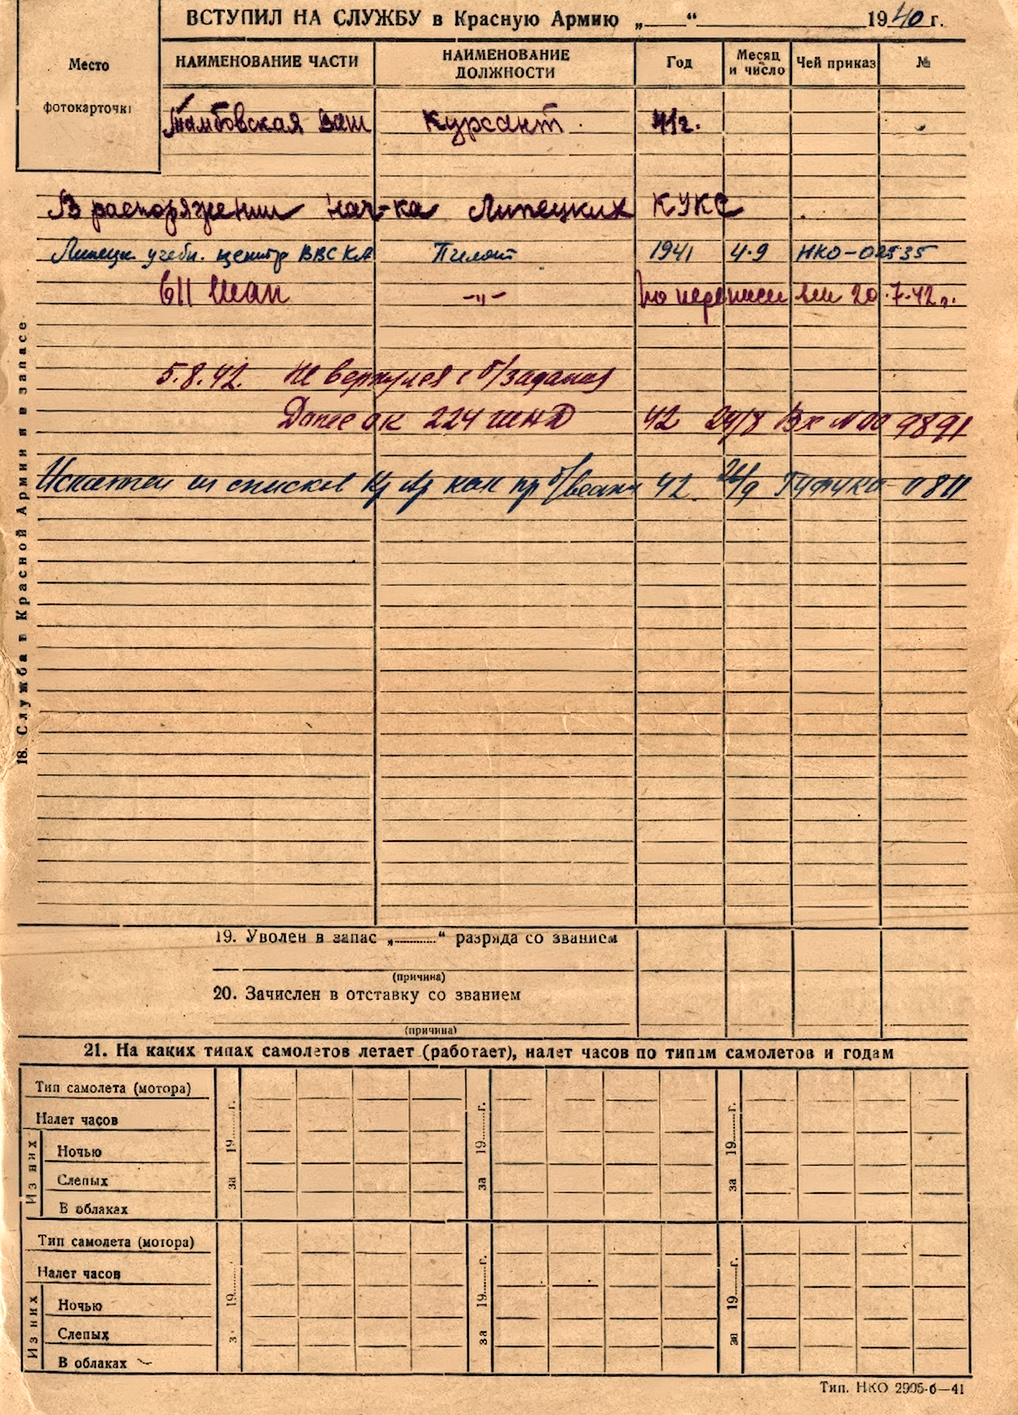 ВСТУПИЛ НА СЛУЖБУ в Красную Армию „____“ ____________ 1940 г.
Место
фотокарточки
НАИМЕНОВАНИЕ ЧАСТИ
НАИМЕНОВАНИЕ ДОЛЖНОСТИ
Год
Месяц и число
Чей приказ
№
Тамбовская ВАШ Курсант 41г.
В распоряжении нач-ка Липецких КУКС
Липецк. учебн. центр ВВС КА Пилот 1941 4.9 НКО-02535
611 ШАП -"- по переписи 20.7.42г.
5.8.42. Не вернулся с б/задания
Донес ок 224 ШАД 42 24/8 Вх № 009891
Исключен из списков Кр Ар как пр б/вести 42 /9 ГУФУКА 0811
18. Служба в Красной Армии и в запасе
19. Уволен в запас „...........“ разряда со званием
(причина)
20. Зачислен в отставку со званием
(причина)
21. На каких типах самолетов летает (работает), налет часов по типам самолетов и годам
Тип самолета (мотора)
Налет часов
Из них
Ночью
Слепых
В облаках
за 19......г.
за 19......г.
за 19......г.
Тип самолета (мотора)
Налет часов
Из них
Ночью
Слепых
В облаках
за 19......г.
за 19......г.
за 19......г.
Тип. НКО 2905-6—41